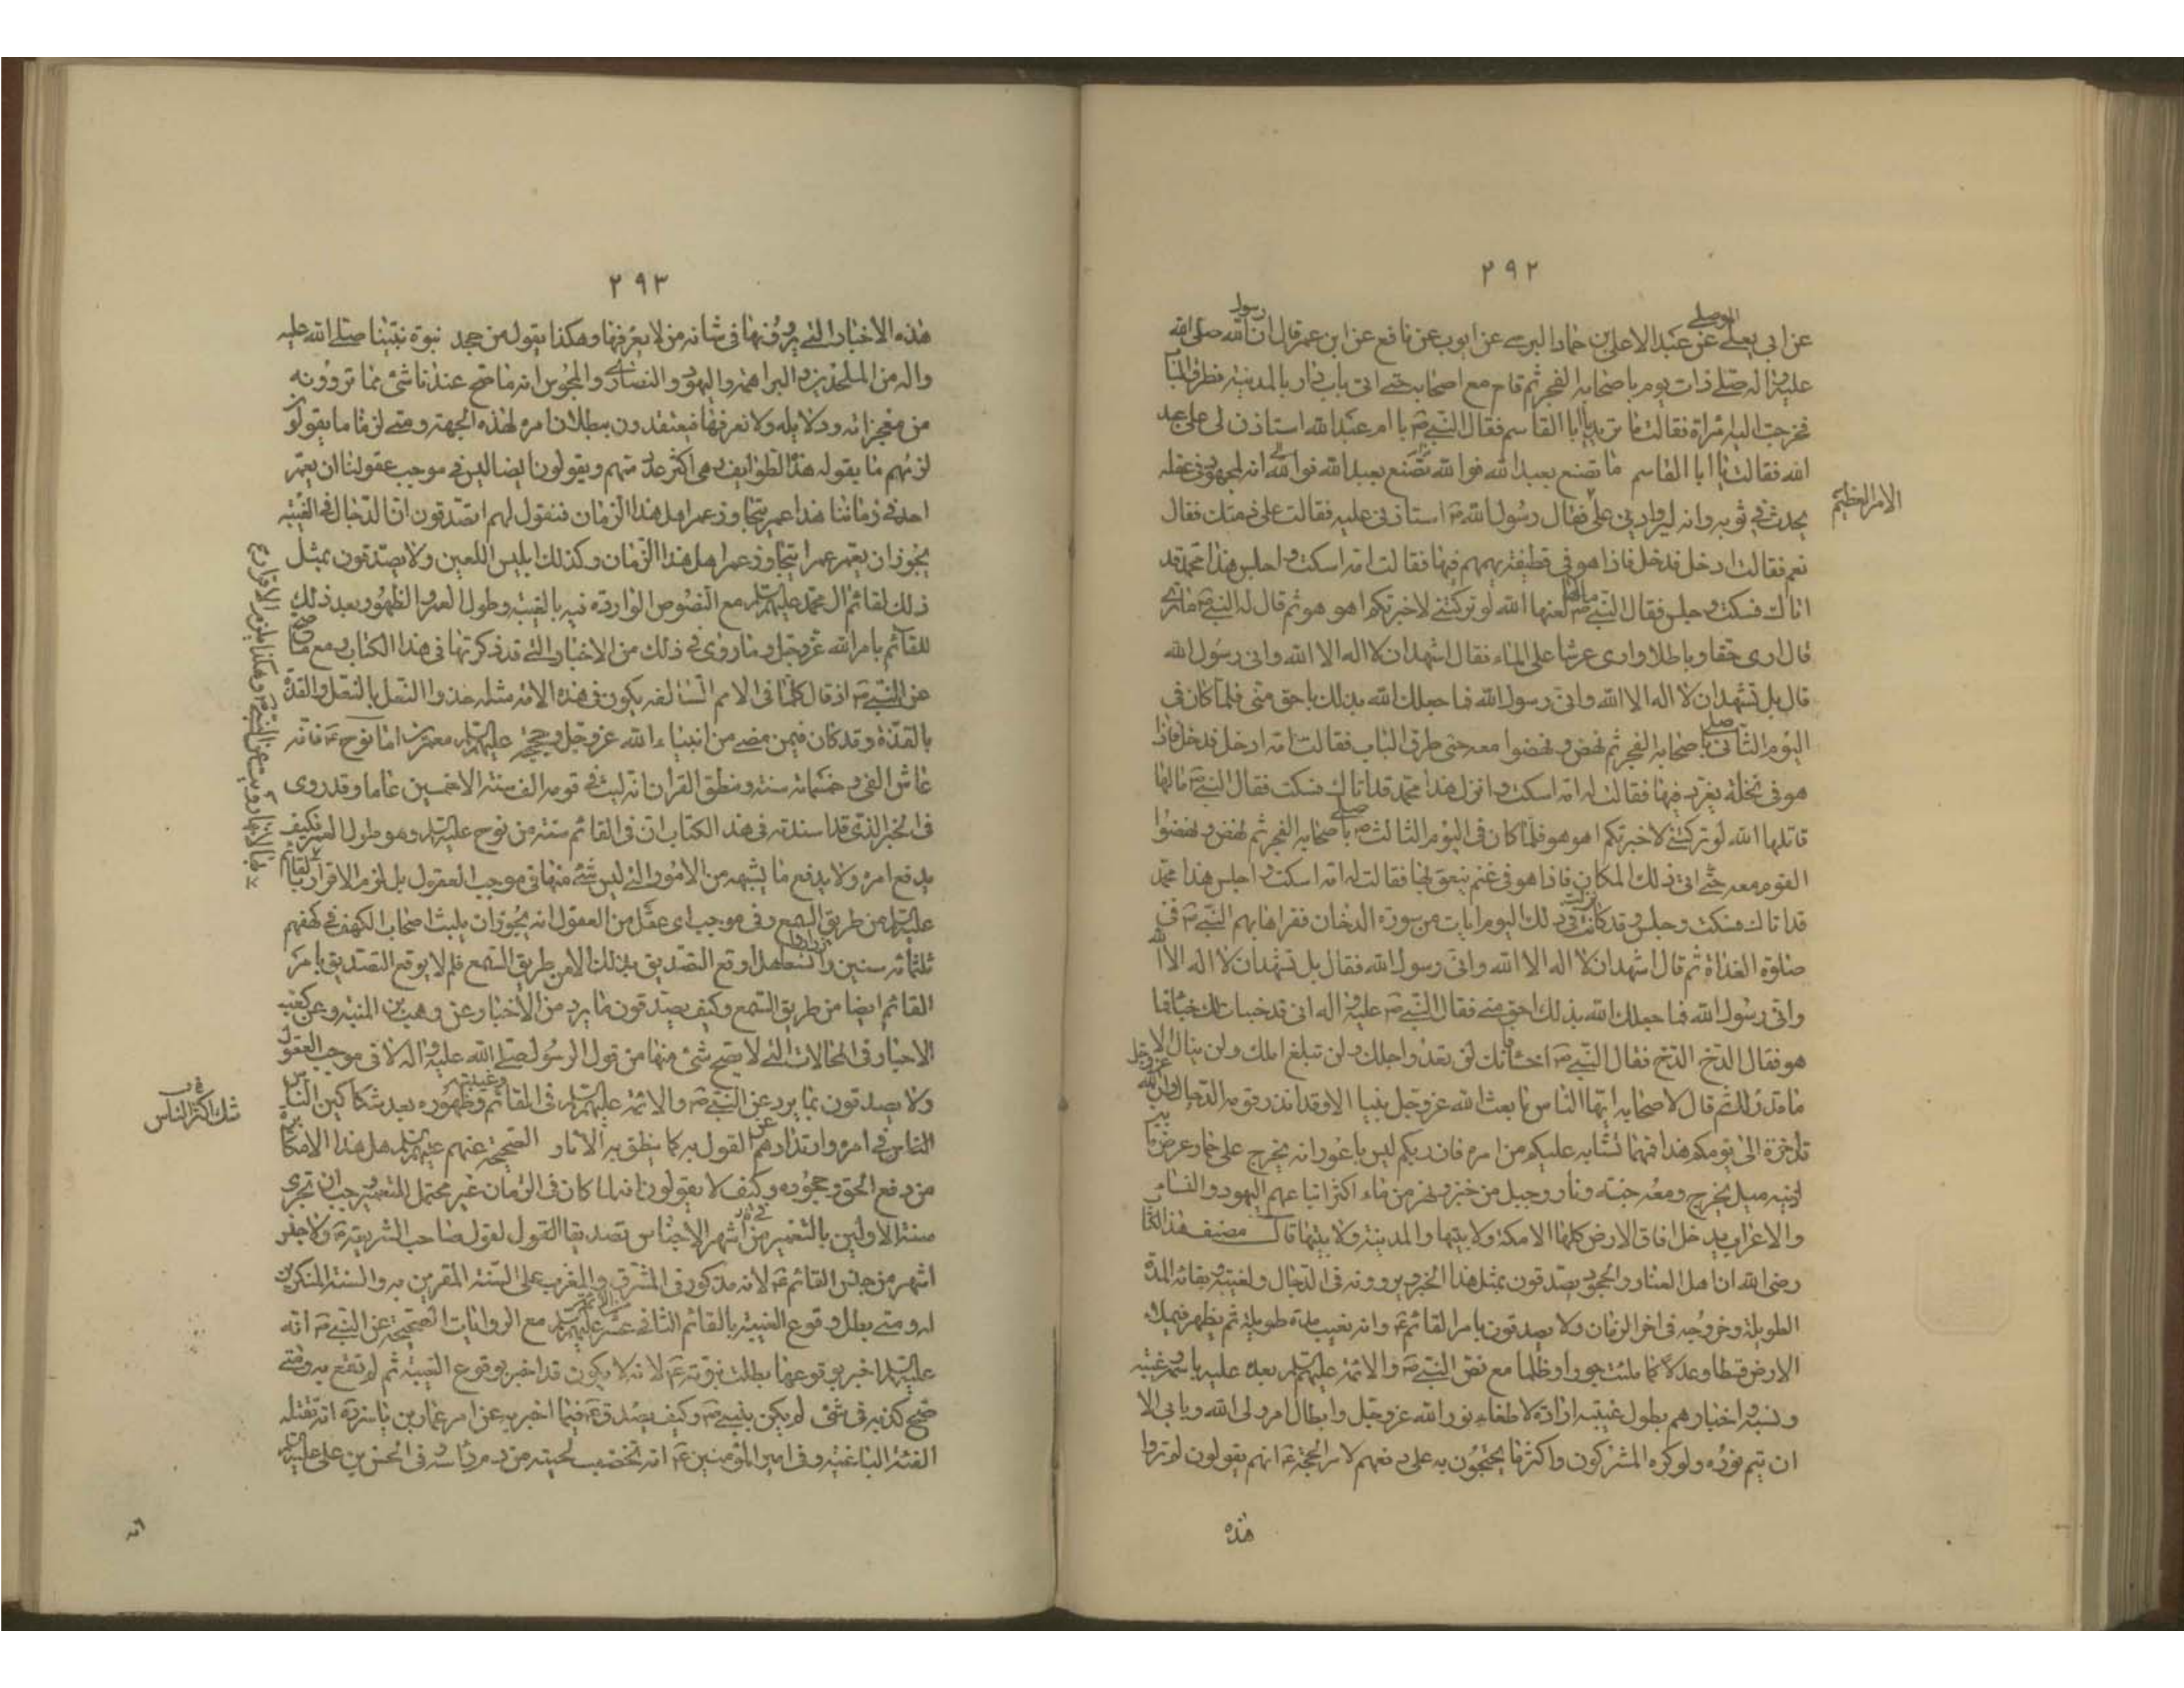 ٢٩٢
عن ابي يعلى الموصلي عن عبد الاعلى بن حماد النرسي عن ايوب عن نافع عن ابن عمر قال ان رسول الله صلى الله
عليه واله صلى ذات يوم باصحابه الفجر ثم قام مع اصحابه حتى اتى باب دار بالمدينة فطرق الباب
فخرجت اليه امراة فقالت ما تريد يا ابا القاسم فقال النبي ص يا ام عبد الله استاذني لي على عبد
الله فقالت يا ابا القاسم ما تصنع بعبد الله فوالله انه لمجهود في عقله
يحدث في ثوبه وانه ليراودني على فقال رسول الله ص استاذني عليه فقالت على ذمتك فقال
الامر العظيم
نعم فقالت ادخل فدخل فاذا هو في قطيفة يهمهم فيها فقالت امه اسكت واجلس هذا محمد قد
اتاك فسكت وجلس فقال النبي ص مالها لعنها الله لو تركتني لاخبرتكم اهو هو ثم قال له النبي ص ما ترى
قال ارى حقا وباطلا وارى عرشا على الماء فقال اشهد ان لا اله الا الله واني رسول الله
قال بل تشهد ان لا اله الا الله واني رسول الله فما جعلك الله بذلك باحق مني فلما كان في
اليوم الثاني صلى باصحابه الفجر ثم نهض ونهضوا معه حتى طرق الباب فقالت امه ادخل فدخل فاذا
هو في نخلة يغرد فيها فقالت له امه اسكت وانزل هذا محمد قد اتاك فسكت فقال النبي ص ما لها
قاتلها الله لو تركتني لاخبرتكم اهو هو فلما كان في اليوم الثالث صلى باصحابه الفجر ثم نهض ونهضوا
القوم معه حتى اتى ذلك المكان فاذا هو في غنم ينعق بها فقالت له امه اسكت واجلس هذا محمد
قد اتاك فسكت وجلس وقد كانت نزلت في ذلك اليوم ايات من سورة الدخان فقراها بهم النبي ص في
صلوة الغداة ثم قال اشهد ان لا اله الا الله واني رسول الله فقال بل تشهد ان لا اله الا الله
واني رسول الله فما جعلك الله بذلك احق مني فقال النبي ص عليه واله اني قد خبات لك خبيئا فما
هو فقال الدخ الدخ فقال النبي ص اخسا فانك لن تعدو اجلك ولن تبلغ املك ولن ينال الا
ما قدر لك ثم قال لاصحابه ايها الناس ما بعث الله عز وجل نبيا الا وقد انذر قومه الدجال وان الله عز وجل
قد اخره الى يومكم هذا فمهما تشابه عليكم من امره فان ربكم ليس باعور انه يخرج على حمار عرض ما بين
اذنيه ميل يخرج ومعه جنة ونار وجبل من خبز ونهر من ماء اكثر اتباعهم اليهود والنساء
والاعراب يدخل افاق الارض كلها الا مكة ولابتيها والمدينة ولابتيها قال مصنف هذا الكتاب
رضي الله ان اهل العناد والجحود يصدقون بمثل هذا الخبر ويروونه في الدجال ولغيبته وبقائه المدة
الطويلة وخروجه في اخر الزمان ولا يصدقون بامر القائم ع وانه يغيب مدة طويلة ثم يظهر فيملا
الارض قسطا وعدلا كما ملئت جورا وظلما مع نص النبي ص والائمة عليهم السلم بعده عليه باسمه وغيبته
ونسبه واخبارهم بطول غيبته ارادة لاطفاء نور الله عز وجل وابطال امر ولي الله ويابى الا
ان يتم نوره ولو كره المشركون واكثر ما يحتجون به على دفعهم لامر الحجة ع انهم يقولون لم تروا
هذه
٢٩٣
هذه الاخبار التي يروونها في شانه من لا يعرفها وهكذا يقول من جحد نبوة نبينا صلى الله عليه
واله من الملحدين والبراهمة واليهود والنصارى والمجوس انه ما صح عندنا شئ مما تروونه
من معجزاته ودلايله ولا نعرفها فيعتقدون ببطلان امره لهذه الجهة ومتى لزمنا ما يقولون
لزمهم ما يقوله هذه الطوايف وهي اكثر عددا منهم ويقولون ايضا ليس في موجب عقولنا ان يعمر
احد في زماننا هذا عمر يتجاوز عمر اهل هذا الزمان فنقول لهم اتصدقون ان الدجال في الغيبة
يجوز ان يعمر عمرا يتجاوز عمر اهل هذا الزمان وكذلك ابليس اللعين ولا يصدقون بمثل
ذلك لقائم ال محمد عليهم السلم مع النصوص الواردة فيه بالغيبة وطول العمر والظهور بعد ذلك
للقائم بامر الله عز وجل وما روى في ذلك من الاخبار التي قد ذكرتها في هذا الكتاب ومع ما صح
عن النبي ص اذ قال كلما في الامم السالفة يكون في هذه الامة مثله حذوا النعل بالنعل والقذة
بالقذة وقد كان فيمن مضى من انبياء الله عز وجل وحججه عليهم السلم معمرين اما نوح ع فانه
عاش الفي وخمسمائة سنة ونطق القران انه لبث في قومه الف سنة الا خمسين عاما وقد روى
في الخبر الذي قد اسندته في هذا الكتاب ان في القائم سنة من نوح عليه السلم وهو طول العمر فكيف
يدفع امره ولا يدفع ما يشبهه من الامور التي ليس شئ منها في موجب العقول بل لزم الاقرار بالقائم
عليه السلم من طريق السمع وفي موجب اي عقل من العقول انه يجوز ان يلبث اصحاب الكهف في كهفهم
ثلثمائة سنين وازدادوا تسعا هل وقع التصديق بذلك الا من طريق السمع فلم لا يوقع التصديق بامر
القائم ايضا من طريق السمع وكيف يصدقون ما يرد من الاخبار عن وهب بن المنبه وعن كعب
الاحبار في المحالات التي لا صح شئ منها من قول الرسول صلى الله عليه واله لا في موجب العقول
ولا يصدقون بما يرد عن النبي ص والائمة عليهم السلم في القائم وغيبته وظهوره بعد شك اكثر الناس
شك اكثر الناس
الناس في امره وارتدادهم عن القول به كما ينطق به الاثار الصحيحة عنهم عليهم السلم هل هذا الا مكابرة
من دفع الحق وجحوده وكيف لا يقولون انه لما كان في الزمان غير محتمل للتعمير وجب ان تجرى
سنة الاولين بالتعمير في اشهر الاجناس تصديقا القول لقول صاحب الشريعة ص ولا جنس
اشهر من جنس القائم ع لانه مذكور في المشرق والمغرب على السنة المقرين به والسنة المنكرين
له ومتى بطل وقوع الغيبة بالقائم الثاني عشر عليهم السلم مع الروايات الصحيحة عن النبي ص انه
عليه السلم اخبر بوقوعها بطلت نبوته ع لانه لا يكون قد اخبر بوقوع الغيبة ثم لم تقع به ومتى
صح كذبه في شئ لم يكن بنبي ص وكيف يصدق ع فيما اخبر به عن امر عمار بن ياسر ره انه تقتله
الفئة الباغية وفي امير المؤمنين ع انه تخضب لحيته من دم راسه وفي الحسن بن علي عليه السلم
انه